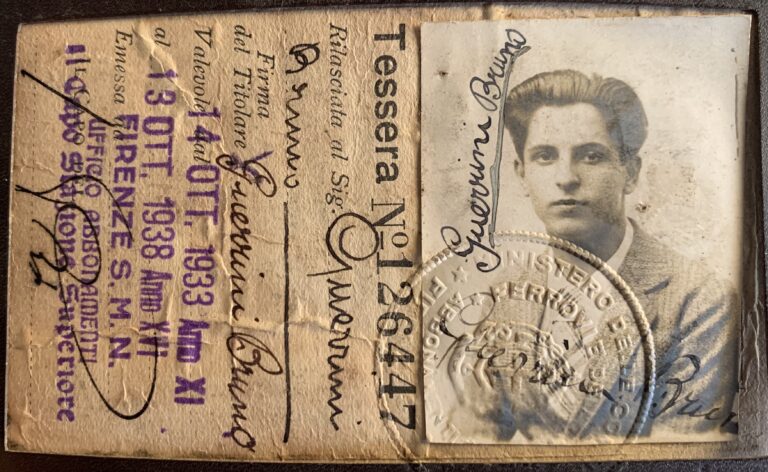 Tessera No 126447
Rilasciata al Sig. Guerrini
Bruno
Firma
del Titolare Guerrini Bruno
Valevole dal 14 OTT. 1933 Anno XI
al 13 OTT. 1938 Anno XVI
Emessa da FIRENZE S. M. N.
UFFICIO ABBONAMENTI
Il Capo Stazione Superiore
Guerrini Bruno
MINISTERO DELLE CO
FERROVIE D
Guerrini Bruno